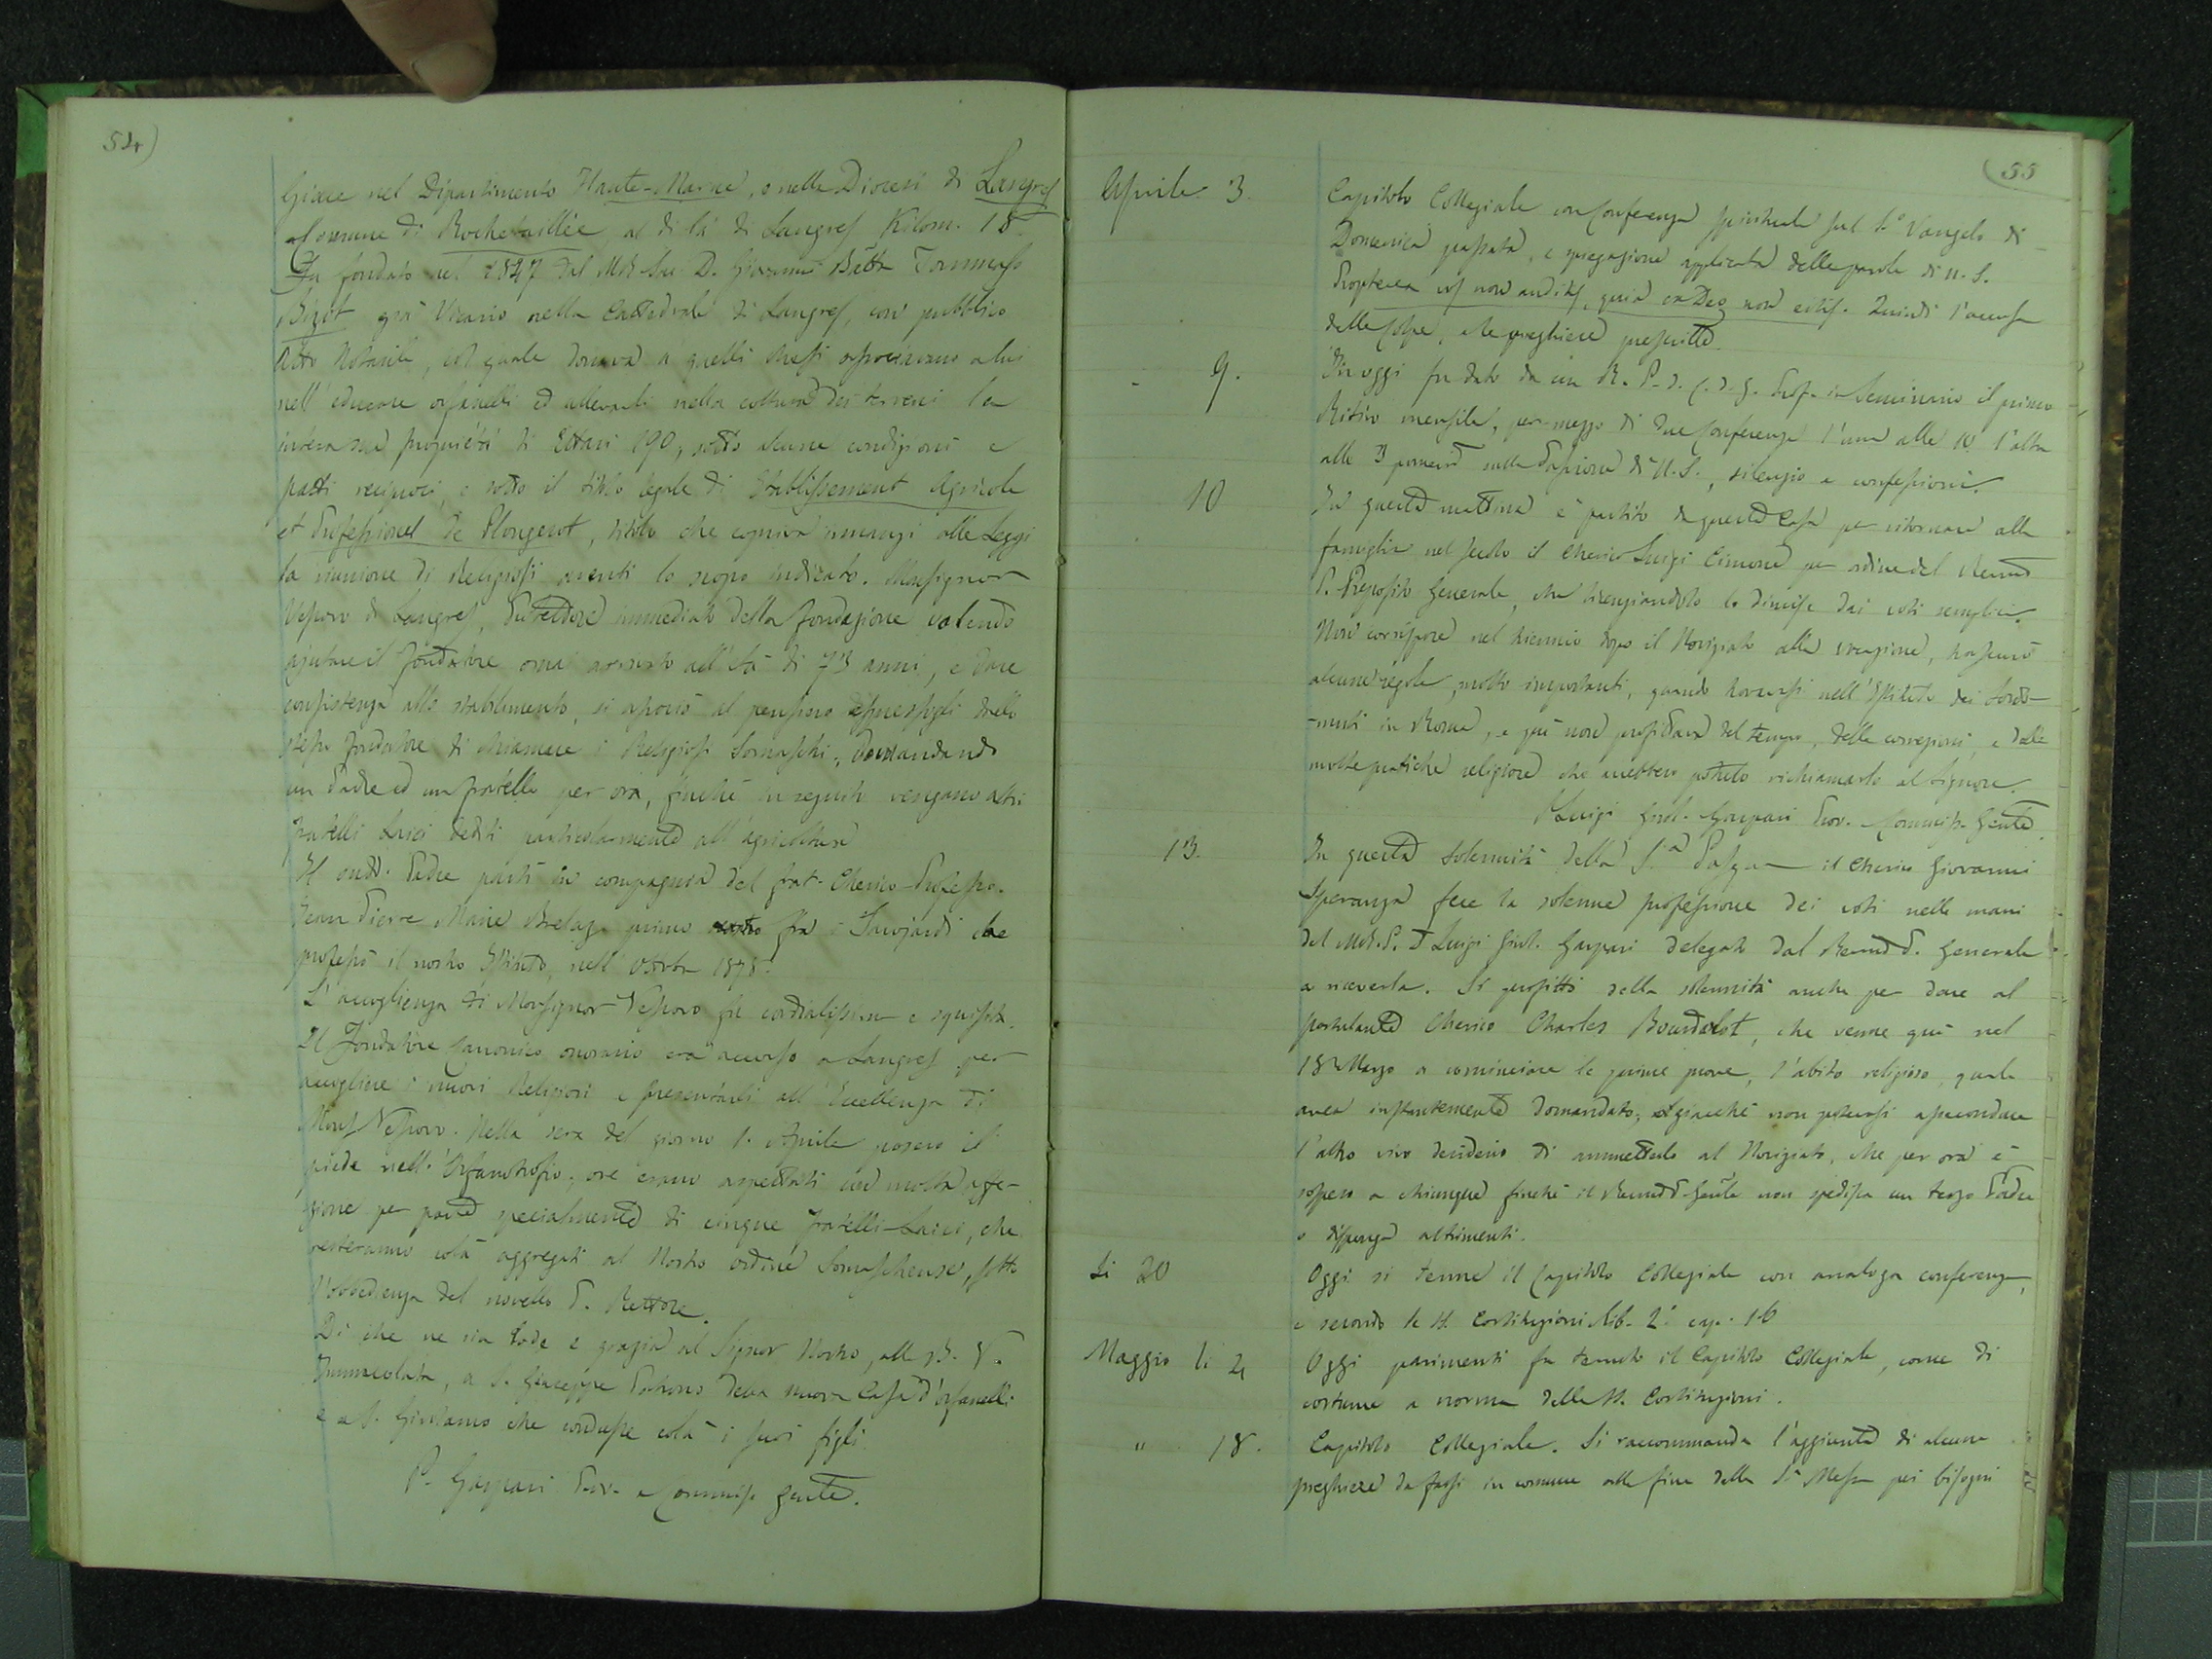 54)
Giace nel Dipartimento Haute-Marne, e nella Diocesi di Langres
Comune di Rochetaillée, al di là di Langres Kilom. 18.
Fu fondato nel 1847 dal MR Sac D. Giovanni Batta Tommaso
Bizot già Vicario nella Cattedrale di Langres, con pubblico
Atto Notarile, col quale donava a quelli che si associavano a lui
nell'educare orfanelli ed allevarli nella coltura dei terreni la
intera sua proprietà di Ettari 190, sotto alcune condizioni e
patti reciproci, e sotto il titolo legale di Etablissement Agricole
et Professionel de Plongerot, titolo che copriva innanzi alle Leggi
la riunione di Religiosi aventi lo scopo indicato. Monsignor
Vescovo di Langres, Protettore immediato della fondazione volendo
ajutare il fondatore omai arrivato all'età di 73 anni, e dare
consistenza allo stabilimento, si associò al pensiero espressogli dallo
stesso fondatore di chiamare i Religiosi Somaschi, domandando
un Padre ed un fratello per ora, finchè in seguito vengano altri
fratelli Laici dediti particolarmente all'agricoltura
Il sudd. Padre partì in compagnia del frat. Cherico-Professo.
Jean Pierre Marie primo fra i Savojardi che
professò il nostro Istituto, nell'Ottobre 1878.
L'accoglienza di Monsignor Vescovo fu cordialissima e squisita.
Il Fondatore Canonico onorario era accorso a Langres per
accogliere i nuovi Religiosi e presentarli all'Eccellenza di
Mons Vescovo. Nella sera del giorno 1. Aprile posero il
piede nell'Orfanotrofio, ove erano aspettati con molta affe-
zione per parte specialmente di cinque fratelli-Laici, che
resteranno colà aggregati al Nostro ordine Somaschense, sotto
l'obbedienza del novello P. Rettore.
Di che ne sia lode e grazia al Signor Nostro, alla B. V.
Immacolata, a S. Giuseppe Patrono della nuova Casa d'orfanelli
e a S. Girolamo che condusse colà i suoi figli.
P. Gaspari Prov. e Commiss. Genle.
(55
Aprile 3. Capitolo Collegiale con Conferenza spirituale sul So Vangelo di
Domenica passata, e spiegazione applicata delle parole di N. S.
Propterea vos non auditis, quia ex Deo non estis. Quindi l'accusa
delle colpe, e le preghiere prescritte.
- 9. In oggi fu dato da un R. P. d. C. d. G. Prof. in Seminario il primo
Ritiro mensile, per mezzo di due Conferenze l'una alle 10 l'altra
alle 3 pomerid sulla Passione di N. S., silenzio e confessioni.
10 In questa mattina è partito da questa Casa per ritornare alla
famiglia nel secolo il Cherico Luigi Cimone per ordine del Revmo
P. Preposito Generale, che licenziandolo lo dimise dai voti semplici.
Non corrispose nel biennio dopo il Noviziato alla vocazione, trascurò
alcune regole, molto importanti, quando trovavasi nell'Istituto dei Sordo-
-muti in Roma, e qui non profittava del tempo, delle correzioni, e delle
molte pratiche religiose che avebbero potuto richiamarlo al Signore.
P Luigi Girol. Gaspari Prov. Commiss. Genle.
13. In questa solennità della S.a Pasqua il Cherico Giovanni
Speranza fece la solenne professione dei voti nelle mani
del M.R. P. D Luigi Girol. Gaspari delegato dal Revmo P. Generale
a riceverla. Si profittò della solennità anche per dare al
postulante Cherico Charles Bourdolot, che venne qui nel
18 Marzo a cominciare le prime prove, l'abito religioso, quale
avea instantemente domandato, giacchè non potevasi assecondare
l'altro vivo desiderio di ammetterlo al Noviziato, che per ora è
sospeso a chiunque finchè il Revmo P. Genle non spedisca un terzo Padre
o disponga altrimenti.
Li 20 Oggi si tenne il Capitolo Collegiale con analoga conferenza,
e secondo le SS. Costituzioni Lib. 2.° cap. 16
Maggio li 4 Oggi parimenti fu tenuto il Capitolo Collegiale, come di
costume a norma delle SS. Costituzioni.
" 18. Capitolo Collegiale. Si raccomanda l'aggiunta di alcune
preghiere da farsi in comune alla fine della Sa Messa pei bisogni